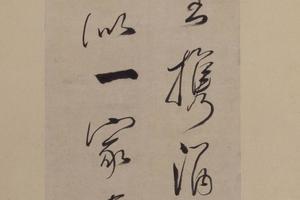 携酒
似一家